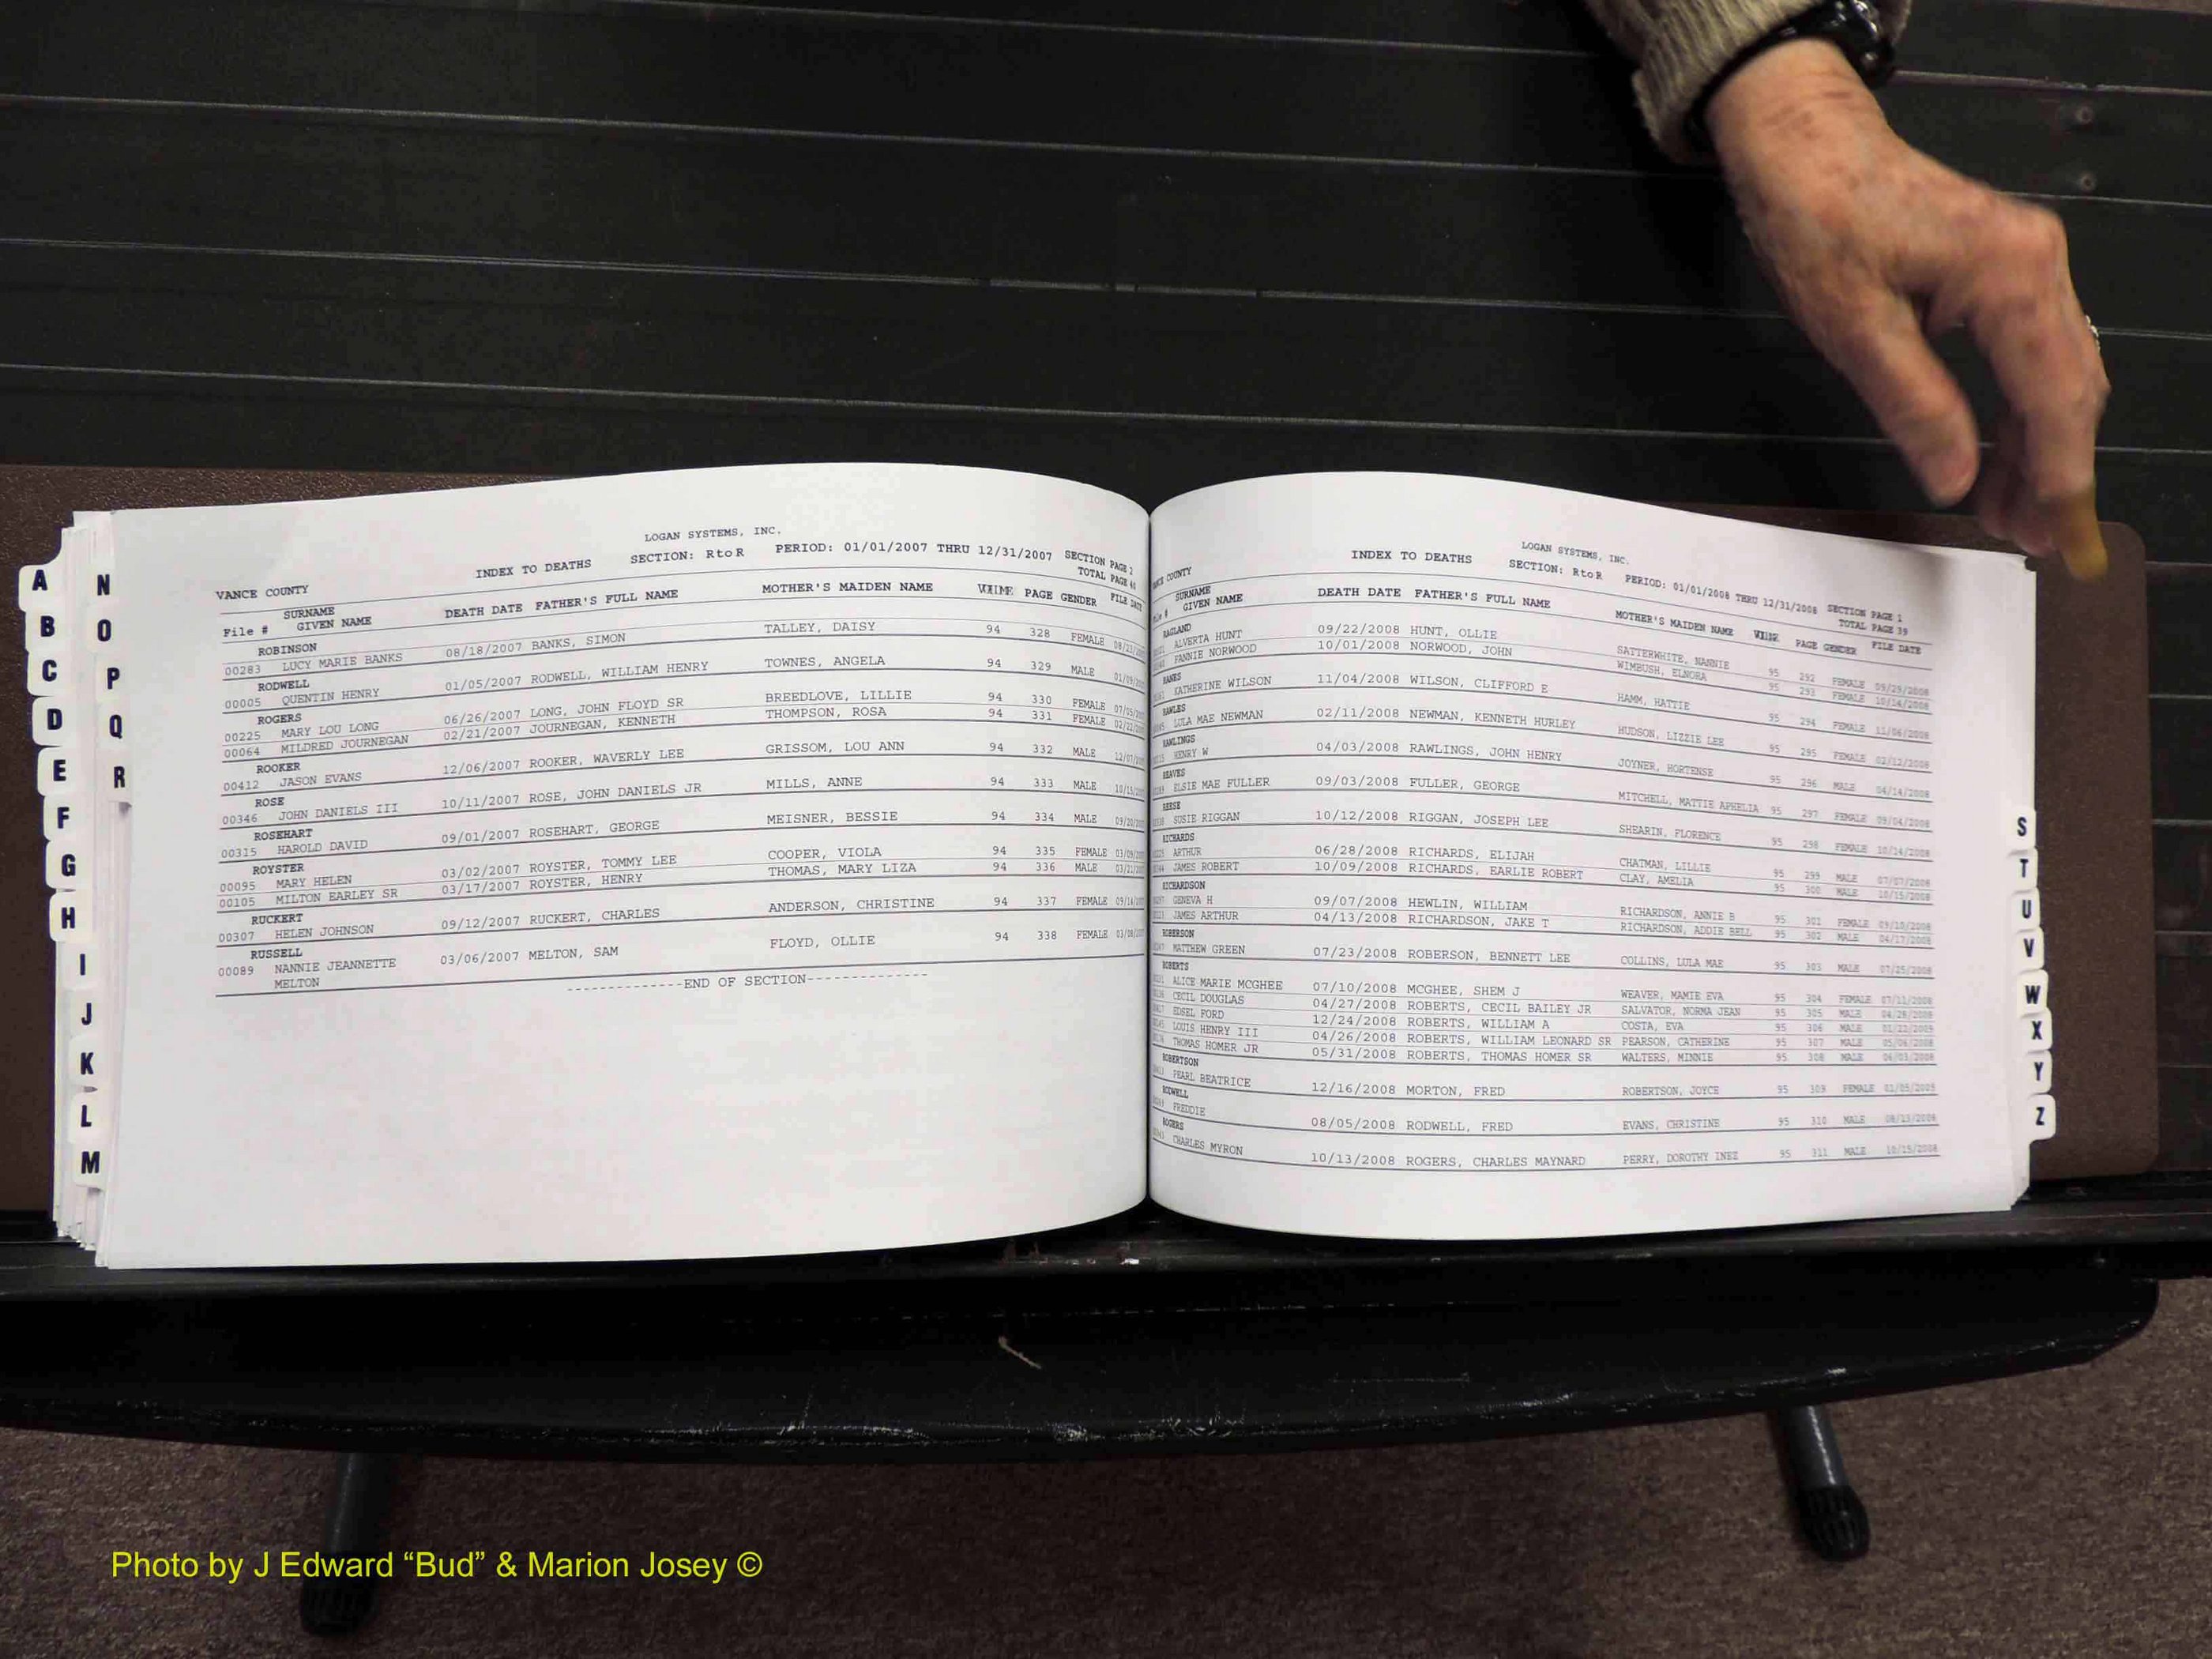 LOGAN SYSTEMS, INC.
VANCE COUNTY INDEX TO DEATHS SECTION: R to R PERIOD: 01/01/2007 THRU 12/31/2007 SECTION PAGE 2
TOTAL PAGE
SURNAME
File # GIVEN NAME DEATH DATE FATHER'S FULL NAME MOTHER'S MAIDEN NAME VOLUME PAGE GENDER FILE DATE
ROBINSON
00283 LUCY MARIE BANKS 08/18/2007 BANKS, SIMON TALLEY, DAISY 94 328 FEMALE
RODWELL
00005 QUENTIN HENRY 01/05/2007 RODWELL, WILLIAM HENRY TOWNES, ANGELA 94 329 MALE
ROGERS
00225 MARY LOU LONG 06/26/2007 LONG, JOHN FLOYD SR BREEDLOVE, LILLIE 94 330 FEMALE
00064 MILDRED JOURNEGAN 02/21/2007 JOURNEGAN, KENNETH THOMPSON, ROSA 94 331 FEMALE
ROOKER
00412 JASON EVANS 12/06/2007 ROOKER, WAVERLY LEE GRISSOM, LOU ANN 94 332 MALE
ROSE
00346 JOHN DANIELS III 10/11/2007 ROSE, JOHN DANIELS JR MILLS, ANNE 94 333 MALE
ROSEHART
00315 HAROLD DAVID 09/01/2007 ROSEHART, GEORGE MEISNER, BESSIE 94 334 MALE
ROYSTER
00095 MARY HELEN 03/02/2007 ROYSTER, TOMMY LEE COOPER, VIOLA 94 335 FEMALE
00105 MILTON EARLEY SR 03/17/2007 ROYSTER, HENRY THOMAS, MARY LIZA 94 336 MALE
RUCKERT
00307 HELEN JOHNSON 09/12/2007 RUCKERT, CHARLES ANDERSON, CHRISTINE 94 337 FEMALE
RUSSELL
00089 NANNIE JEANNETTE 03/06/2007 MELTON, SAM FLOYD, OLLIE 94 338 FEMALE
MELTON
-------------END OF SECTION--------------
A
B
C
D
E
F
G
H
I
J
K
L
M
N
O
P
Q
R
LOGAN SYSTEMS, INC.
COUNTY INDEX TO DEATHS SECTION: R to R PERIOD: 01/01/2008 THRU 12/31/2008 SECTION PAGE 1
TOTAL PAGE 39
SURNAME
File # GIVEN NAME DEATH DATE FATHER'S FULL NAME MOTHER'S MAIDEN NAME VOLUME PAGE GENDER FILE DATE
RAGLAND
ALVERTA HUNT 09/22/2008 HUNT, OLLIE SATTERWHITE, NANNIE 95 292 FEMALE 09/29/2008
FANNIE NORWOOD 10/01/2008 NORWOOD, JOHN WIMBUSH, ELNORA 95 293 FEMALE 10/14/2008
KATHERINE WILSON 11/04/2008 WILSON, CLIFFORD E HAMM, HATTIE 95 294 FEMALE 11/06/2008
LULA MAE NEWMAN 02/11/2008 NEWMAN, KENNETH HURLEY HUDSON, LIZZIE LEE 95 295 FEMALE 02/12/2008
RAWLINGS
HENRY W 04/03/2008 RAWLINGS, JOHN HENRY JOYNER, HORTENSE 95 296 MALE 04/14/2008
ELSIE MAE FULLER 09/03/2008 FULLER, GEORGE MITCHELL, MATTIE APHELIA 95 297 FEMALE 09/04/2008
REESE
SUSIE RIGGAN 10/12/2008 RIGGAN, JOSEPH LEE SHEARIN, FLORENCE 95 298 FEMALE 10/14/2008
RICHARDS
ARTHUR 06/28/2008 RICHARDS, ELIJAH CHATMAN, LILLIE 95 299 MALE 07/07/2008
JAMES ROBERT 10/09/2008 RICHARDS, EARLIE ROBERT CLAY, AMELIA 95 300 MALE 10/15/2008
RICHARDSON
GENEVA H 09/07/2008 HEWLIN, WILLIAM RICHARDSON, ANNIE B 95 301 FEMALE 09/10/2008
JAMES ARTHUR 04/13/2008 RICHARDSON, JAKE T RICHARDSON, ADDIE BELL 95 302 MALE 04/17/2008
ROBERSON
MATTHEW GREEN 07/23/2008 ROBERSON, BENNETT LEE COLLINS, LULA MAE 95 303 MALE 07/25/2008
ROBERTS
ALICE MARIE MCGHEE 07/10/2008 MCGHEE, SHEM J WEAVER, MAMIE EVA 95 304 FEMALE 07/11/2008
CECIL DOUGLAS 04/27/2008 ROBERTS, CECIL BAILEY JR SALVATOR, NORMA JEAN 95 305 MALE 04/28/2008
EDSEL FORD 12/24/2008 ROBERTS, WILLIAM A COSTA, EVA 95 306 MALE
LOUIS HENRY III 04/26/2008 ROBERTS, WILLIAM LEONARD SR PEARSON, CATHERINE 95 307 MALE
THOMAS HOMER JR 05/31/2008 ROBERTS, THOMAS HOMER SR WALTERS, MINNIE 95 308 MALE 06/03/2008
ROBERTSON
PEARL BEATRICE 12/16/2008 MORTON, FRED ROBERTSON, JOYCE 95 309 FEMALE
RODWELL
FREDDIE 08/05/2008 RODWELL, FRED EVANS, CHRISTINE 95 310 MALE
ROGERS
CHARLES MYRON 10/13/2008 ROGERS, CHARLES MAYNARD PERRY, DOROTHY INEZ 95 311 MALE 10/15/2008
S
T
U
V
W
X
Y
Z
Photo by J Edward “Bud” & Marion Josey ©